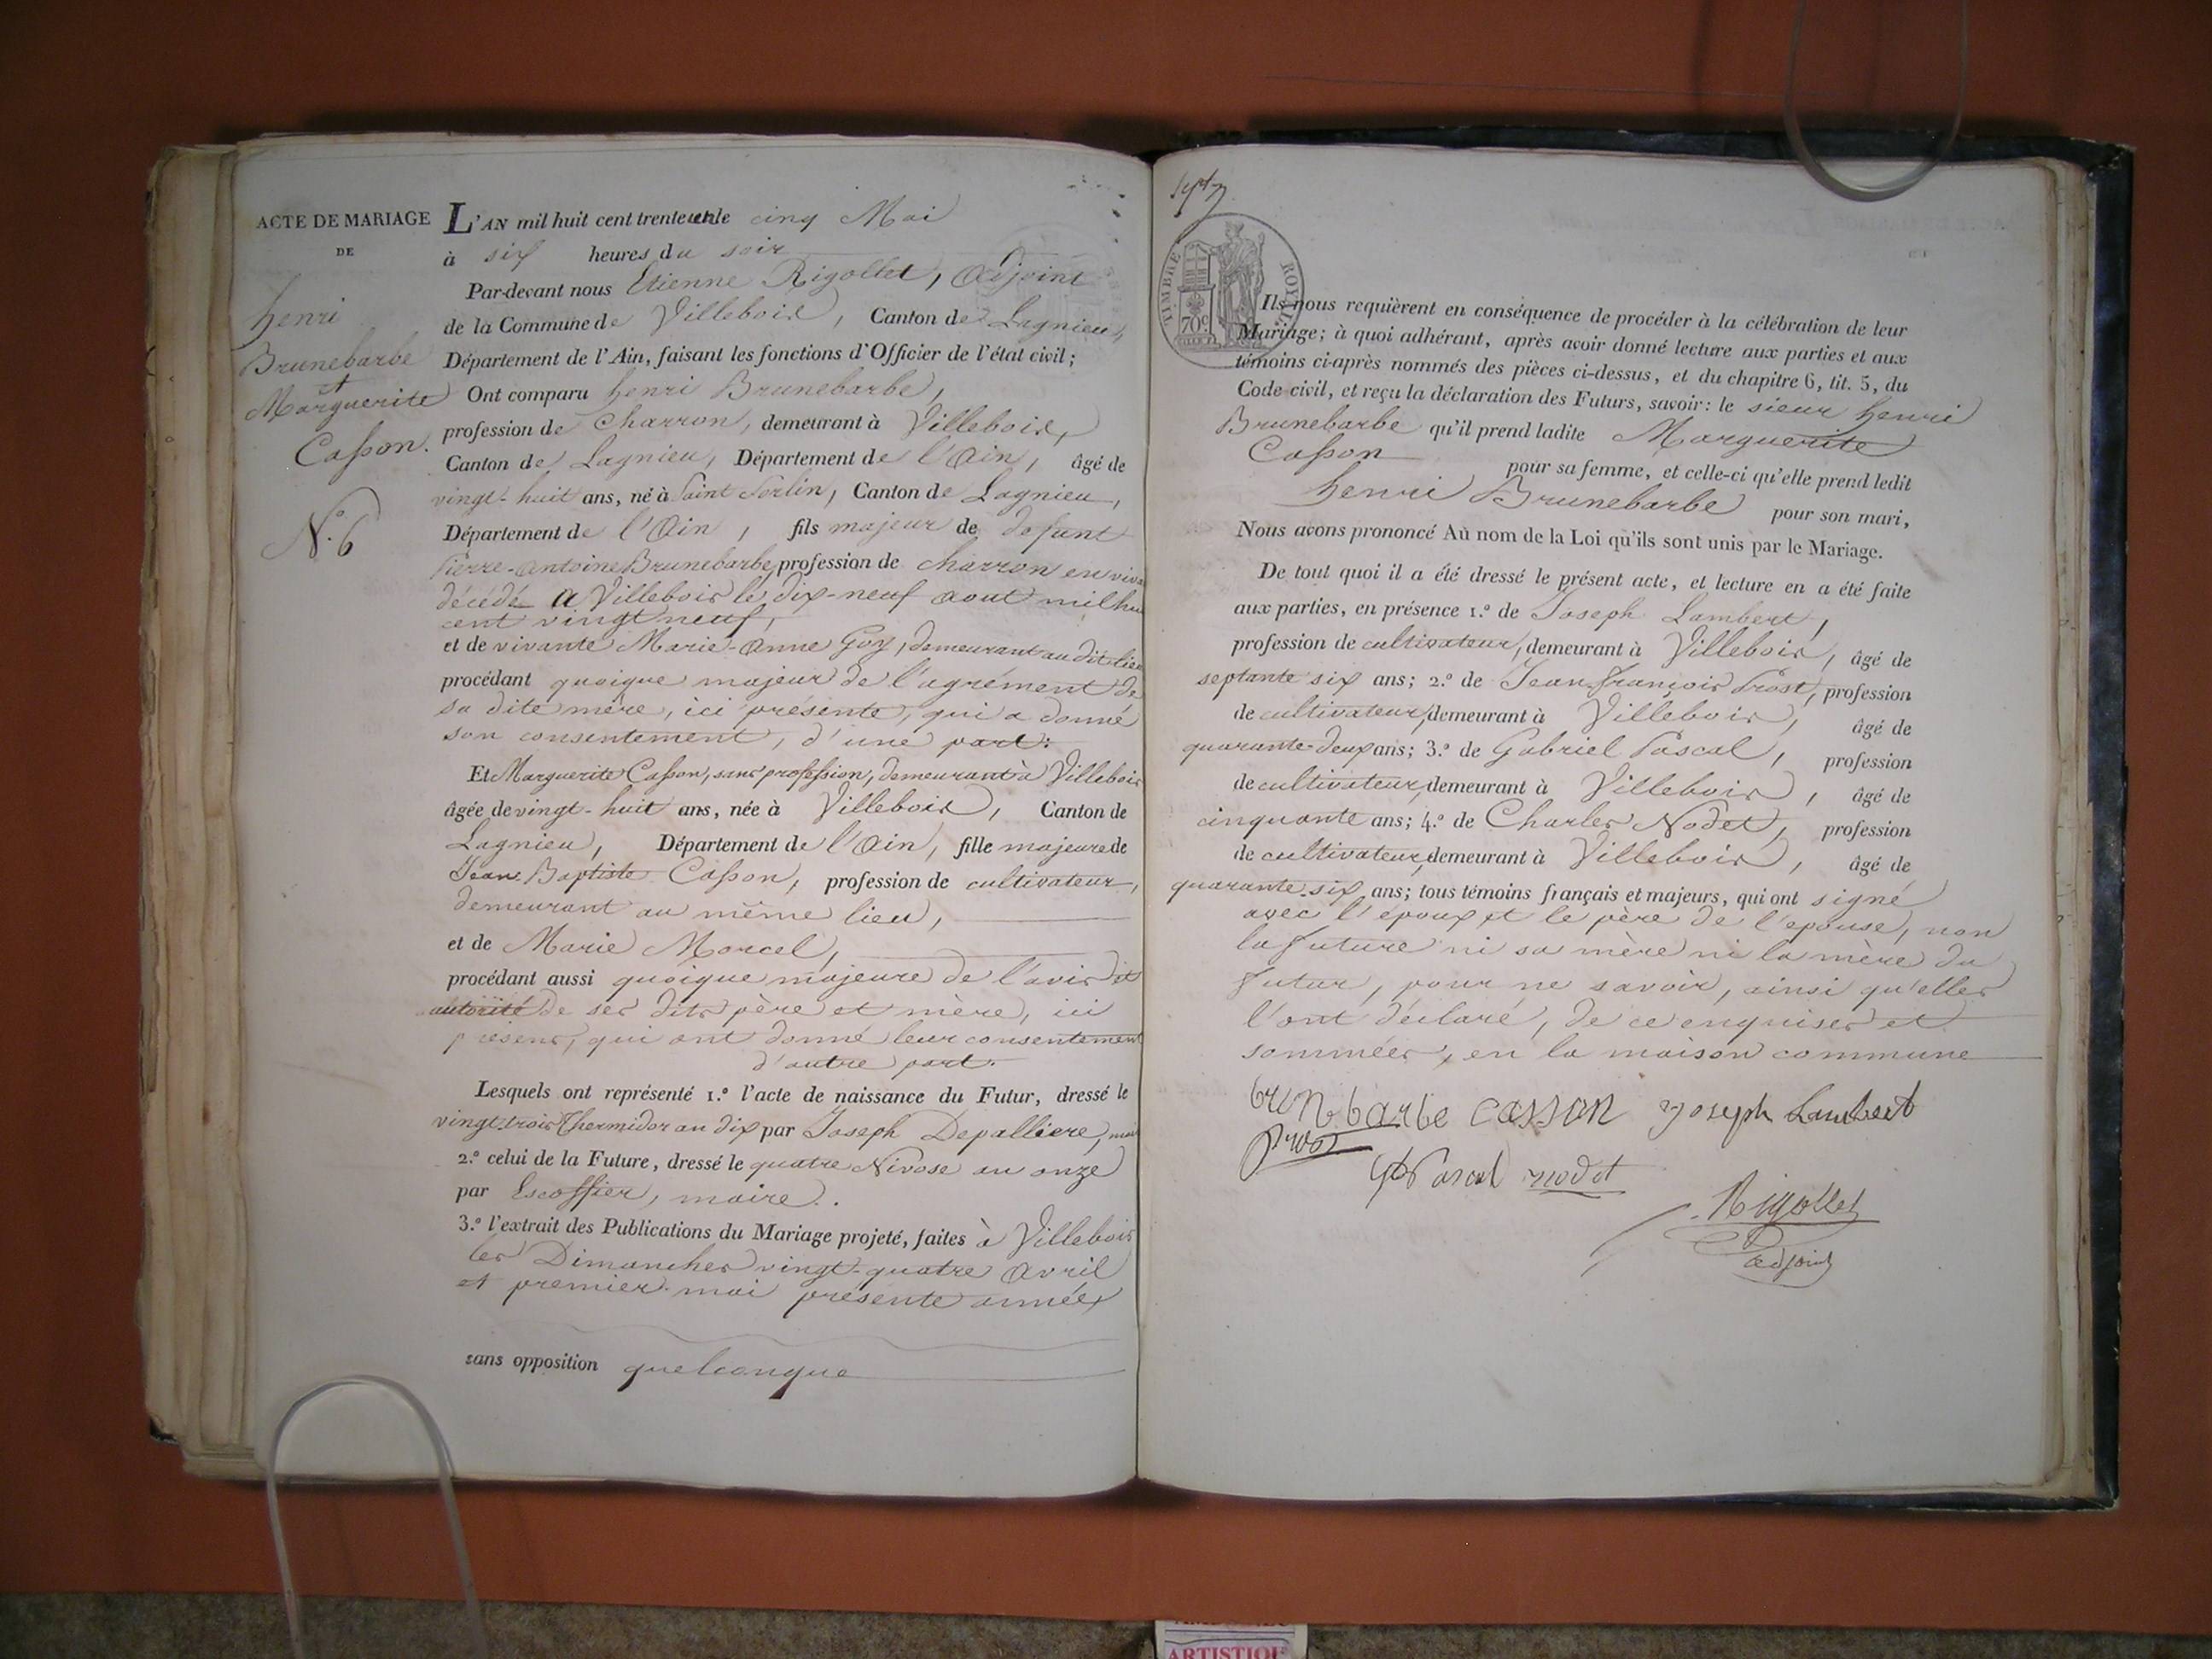 ACTE DE MARIAGE
DE
henri
Brunebarbe
et
Marguerite
Casson.
N.° 6
L'AN mil huit cent trente un le cinq Mai
à six heures du soir
Par-devant nous Etienne Rigollet, adjoint
de la Commune de Villebois, Canton de Lagnieu,
Département de l'Ain, faisant les fonctions d'Officier de l'état civil;
Ont comparu henri Brunebarbe,
profession de Charron, demeurant à Villebois,
Canton de Lagnieu, Département de l'Ain, âgé de
vingt-huit ans, né à Saint Sorlin, Canton de Lagnieu,
Département de l'Ain, fils majeur de defunt
Pierre-Antoine Brunebarbe, profession de charron en viva
décédé a Villebois le dix-neuf aout mil hu
cent vingt neuf,
et de vivante Marie-Anne Goy, demeurant au dit lieu
procédant quoique majeur de l'agrément de
sa dite mère, ici présente, qui a donné
son consentement, d'une part:
Et Marguerite Casson, sans profession, demeurant à Villebois
âgée de vingt-huit ans, née à Villebois, Canton de
Lagnieu, Département de l'Ain, fille majeure de
Jean-Baptiste Casson, profession de cultivateur,
demeurant au même lieu,
et de Marie Morcel,
procédant aussi quoique majeure de l'avis et
autorité de ses dits père et mère, ici
présens, qui ont donné leur consentement
d'autre part.
Lesquels ont représenté 1.° l'acte de naissance du Futur, dressé le
vingt-trois Thermidor an dix par Joseph Depallière, mai
2.° celui de la Future, dressé le quatre Nivose an onze
par Escoffier, maire.
3.° l'extrait des Publications du Mariage projeté, faites à Villebois
les Dimanches vingt-quatre Avril
et premier mai présente année,
sans opposition quelconque
TIMBRE ROYAL
70c
Ils nous requièrent en conséquence de procéder à la célébration de leur
Mariage; à quoi adhérant, après avoir donné lecture aux parties et aux
témoins ci-après nommés des pièces ci-dessus, et du chapitre 6, tit. 5, du
Code civil, et reçu la déclaration des Futurs, savoir: le sieur henri
Brunebarbe qu'il prend ladite Marguerite
Casson pour sa femme, et celle-ci qu'elle prend ledit
henri Brunebarbe pour son mari,
Nous avons prononcé Au nom de la Loi qu'ils sont unis par le Mariage.
De tout quoi il a été dressé le présent acte, et lecture en a été faite
aux parties, en présence 1.° de Joseph Lambert,
profession de cultivateur, demeurant à Villebois, âgé de
septante six ans; 2.° de Jean-François Prost, profession
de cultivateur, demeurant à Villebois, âgé de
quarante-deux ans; 3.° de Gabriel Pascal, profession
de cultivateur, demeurant à Villebois, âgé de
cinquante ans; 4.° de Charles Nodet, profession
de cultivateur, demeurant à Villebois, âgé de
quarante-six ans; tous témoins français et majeurs, qui ont signé
avec l'epoux et le père de l'epouse, non
la future ni sa mère ni la mère du
futur, pour ne savoir, ainsi qu'elles
l'ont déclaré, de ce enquises et
sommées, en la maison commune
brunbarbe casson Joseph Lambert
Prost
Gb Pascal nodet
Rigollet
adjoint
ARTISTIQUE